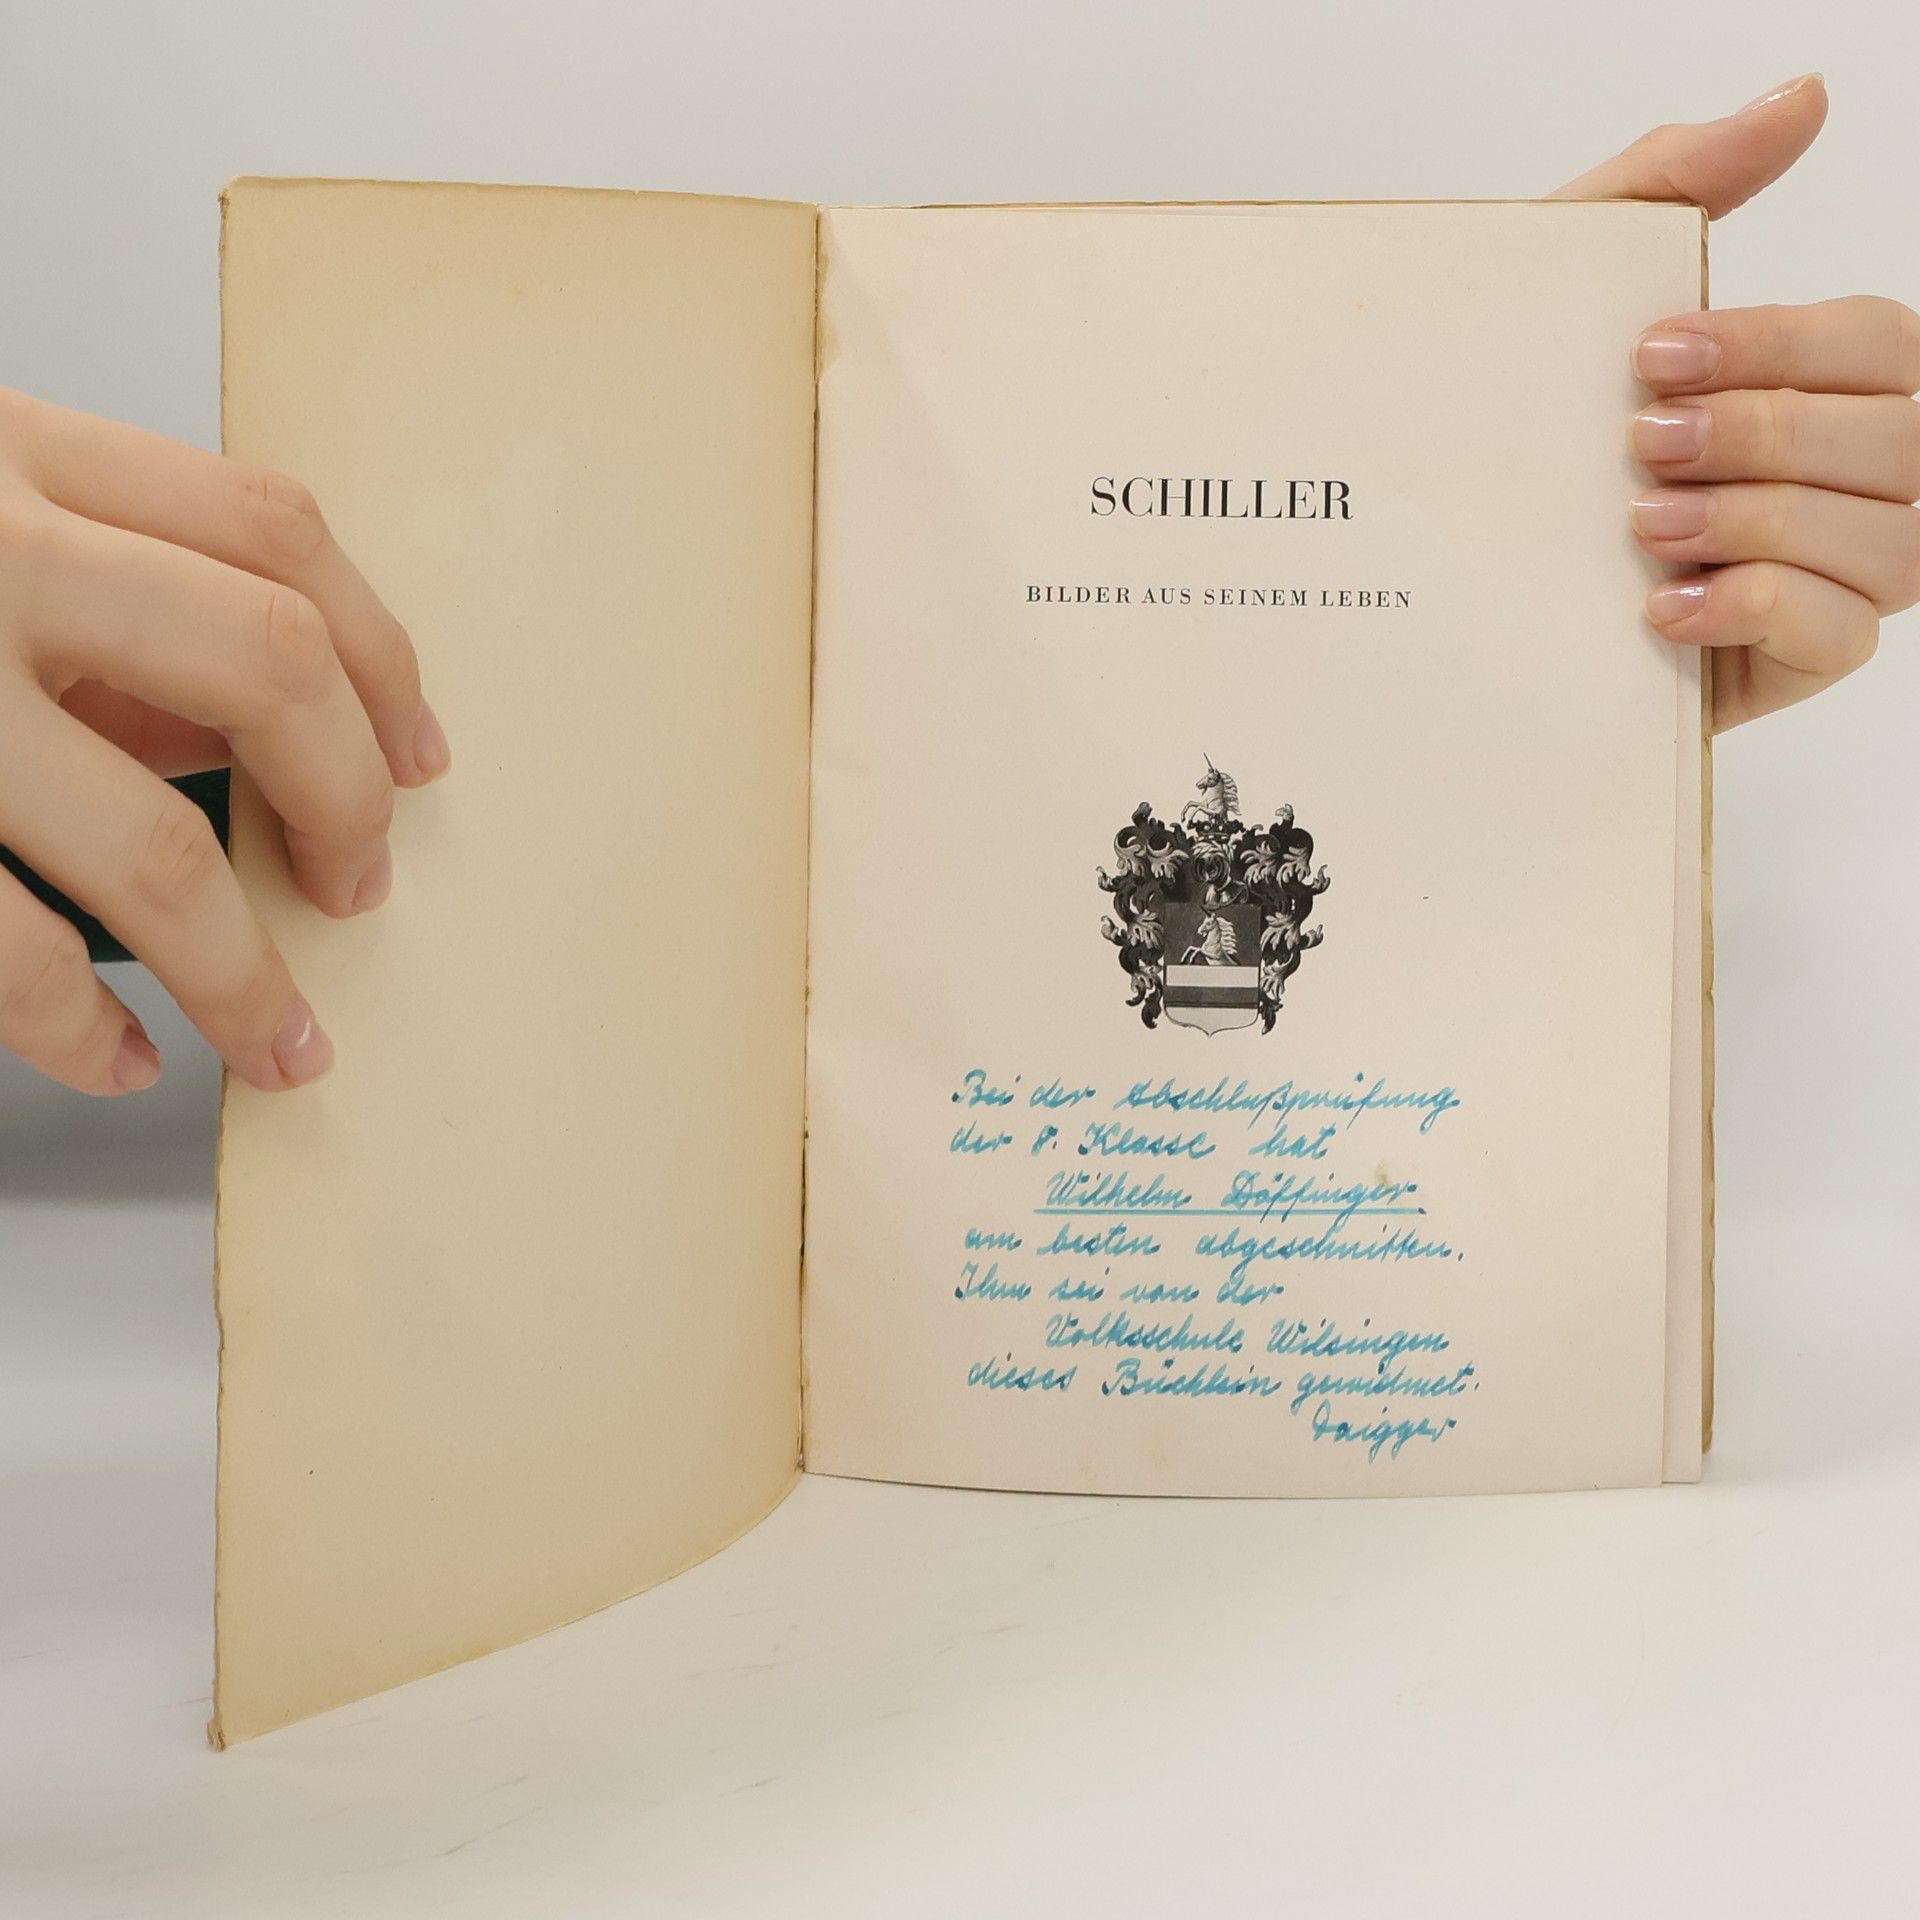 SCHILLER
BILDER AUS SEINEM LEBEN
Bei der Abschlußprüfung
der 8. Klasse hat
Wilhelm Döffinger
am besten abgeschnitten.
Ihm sei von der
Volksschule Wilsingen
dieses Büchlein gewidmet.
Daigger